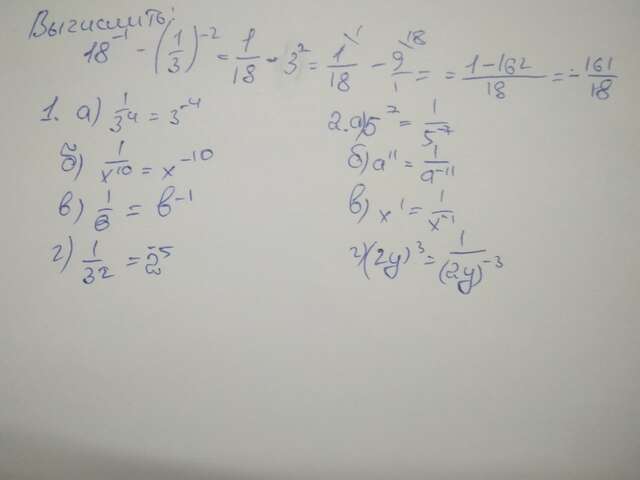 Вычислить:
18⁻¹ - (1/3)⁻² = 1/18 - 3² = 1\1/18 - 9\18/1 = = 1-162/18 = -161/18
1. а) 1/3⁴ = 3⁻⁴
б) 1/x¹⁰ = x⁻¹⁰
в) 1/в = в⁻¹
г) 1/32 = 2⁻⁵
2. а) 5⁷ = 1/5⁻⁷
б) a¹¹ = 1/a⁻¹¹
в) x¹ = 1/x⁻¹
г) (2y)³ = 1/(2y)⁻³